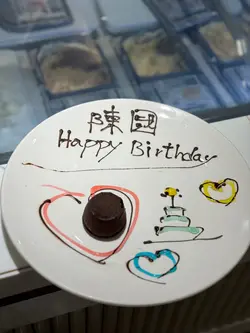 陳國
Happy Birthday